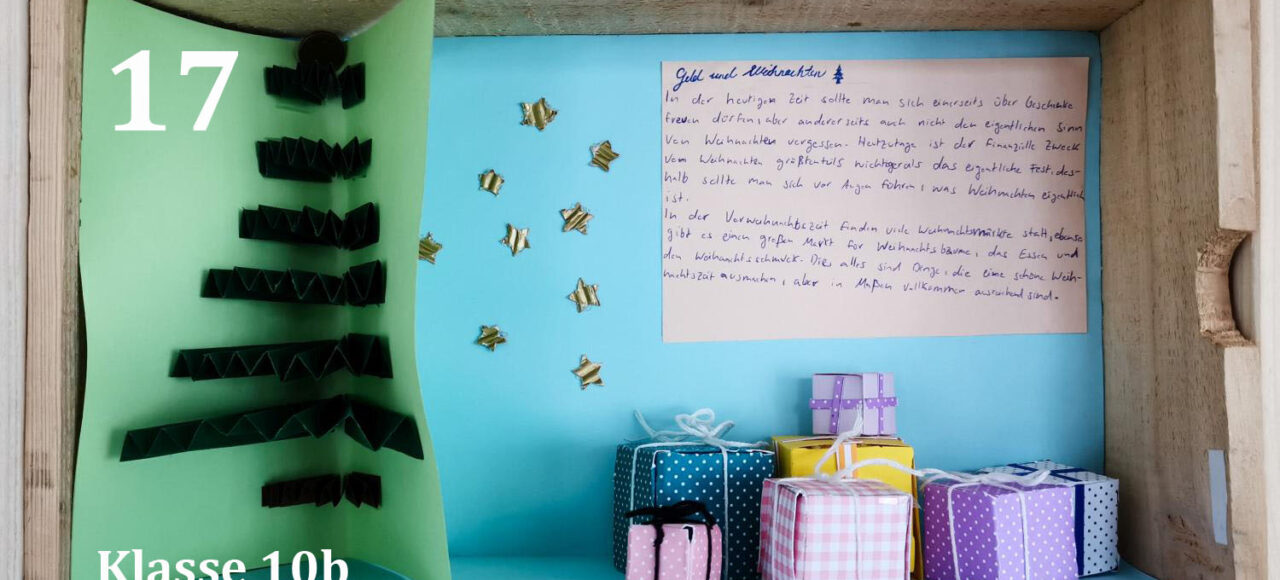 17
Geld und Weihnachten
In der heutigen Zeit sollte man sich einerseits über Geschenke
freuen dürfen, aber andererseits auch nicht den eigentlichen Sinn
von Weihnachten vergessen. Heutzutage ist der finanzielle Zweck
vom Weihnachten größtenteils wichtiger als das eigentliche Fest, des-
halb sollte man sich vor Augen führen, was Weihnachten eigentlich
ist.
In der Vorweihnachtszeit finden viele Weihnachtsmärkte statt, ebenso
gibt es einen großen Markt für Weihnachtsbäume, das Essen und
den Weihnachtsschmuck. Dies alles sind Dinge, die eine schöne Weih-
nachtszeit ausmachen, aber in Maßen vollkommen ausreichend sind.
Klasse 10b